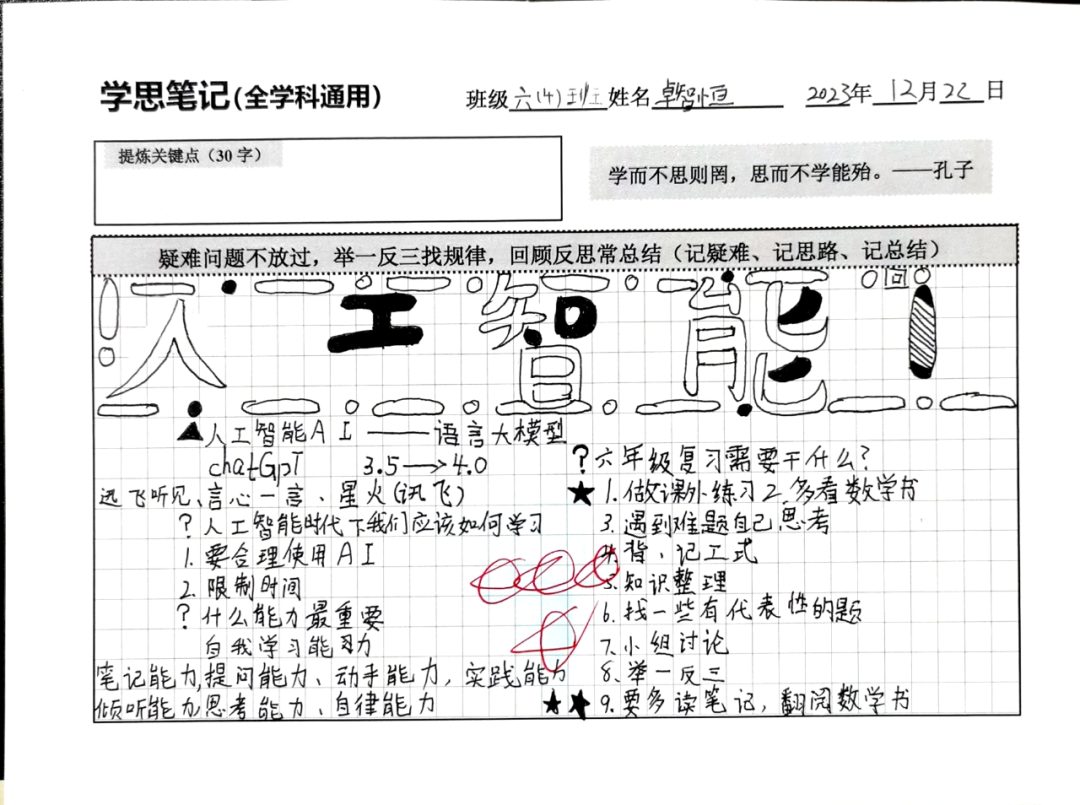 学思笔记(全学科通用) 班级 六(4)班 姓名 卓智恒 2023年 12月 22日
提炼关键点（30 字）
学而不思则罔，思而不学能殆。——孔子
疑难问题不放过，举一反三找规律，回顾反思常总结（记疑难、记思路、记总结）
人工智能！
▲人工智能AI——语言大模型
chatGpT 3.5→4.0
远飞听见、言心一言、星火(讯飞)
?人工智能时代下我们应该如何学习
1.要合理使用AI
2.限制时间
?什么能力最重要
自我学习能力
笔记能力,提问能力、动手能力，实践能力
倾听能力,思考能力、自律能力
?六年级复习需要干什么?
★1.做课外练习2.多看数学书
3.遇到难题自己思考
4.背、记工式
5.知识整理
6.找一些有代表性的题
7.小组讨论
8.举一反三
★★9.要多读笔记，翻阅数学书